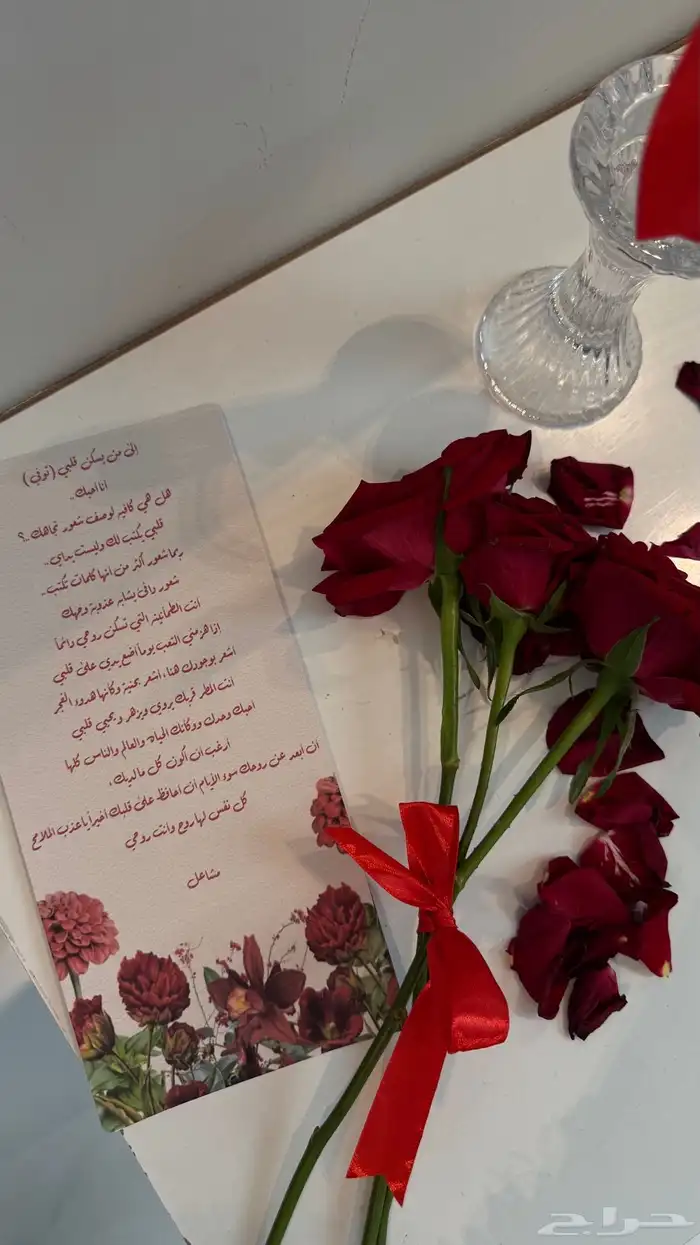 إلى من يسكن قلبي (توفي)
انا احبك..
هل هي كافيه لوصف شعور تجاهك..؟
قلبي يكتب لك وليست يداي..
ربما شعور أكثر من انها كلمات تكتب..
شعور وافي يشابه عذوبة وجهك
أنت الطمأنينة التي تسكن روحي دائماً
إذا هزمني التعب يوماً أضع يدي على قلبي
اشعر بوجودك هنا، اشعر بحنية وكأنها هدوء الفجر
أنت المطر قربك يروي ويزهر ويحيي قلبي
احبك وحدك ووكأنك الحياه والعالم والناس كلها
أرغب ان أكون كل مالديك،
ان أبعد عن روحك سوء الأيام ان احافظ على قلبك اخيراً ياعذب الملامح
كل نفس لها روح وانت روحي
مشاعل
حراج